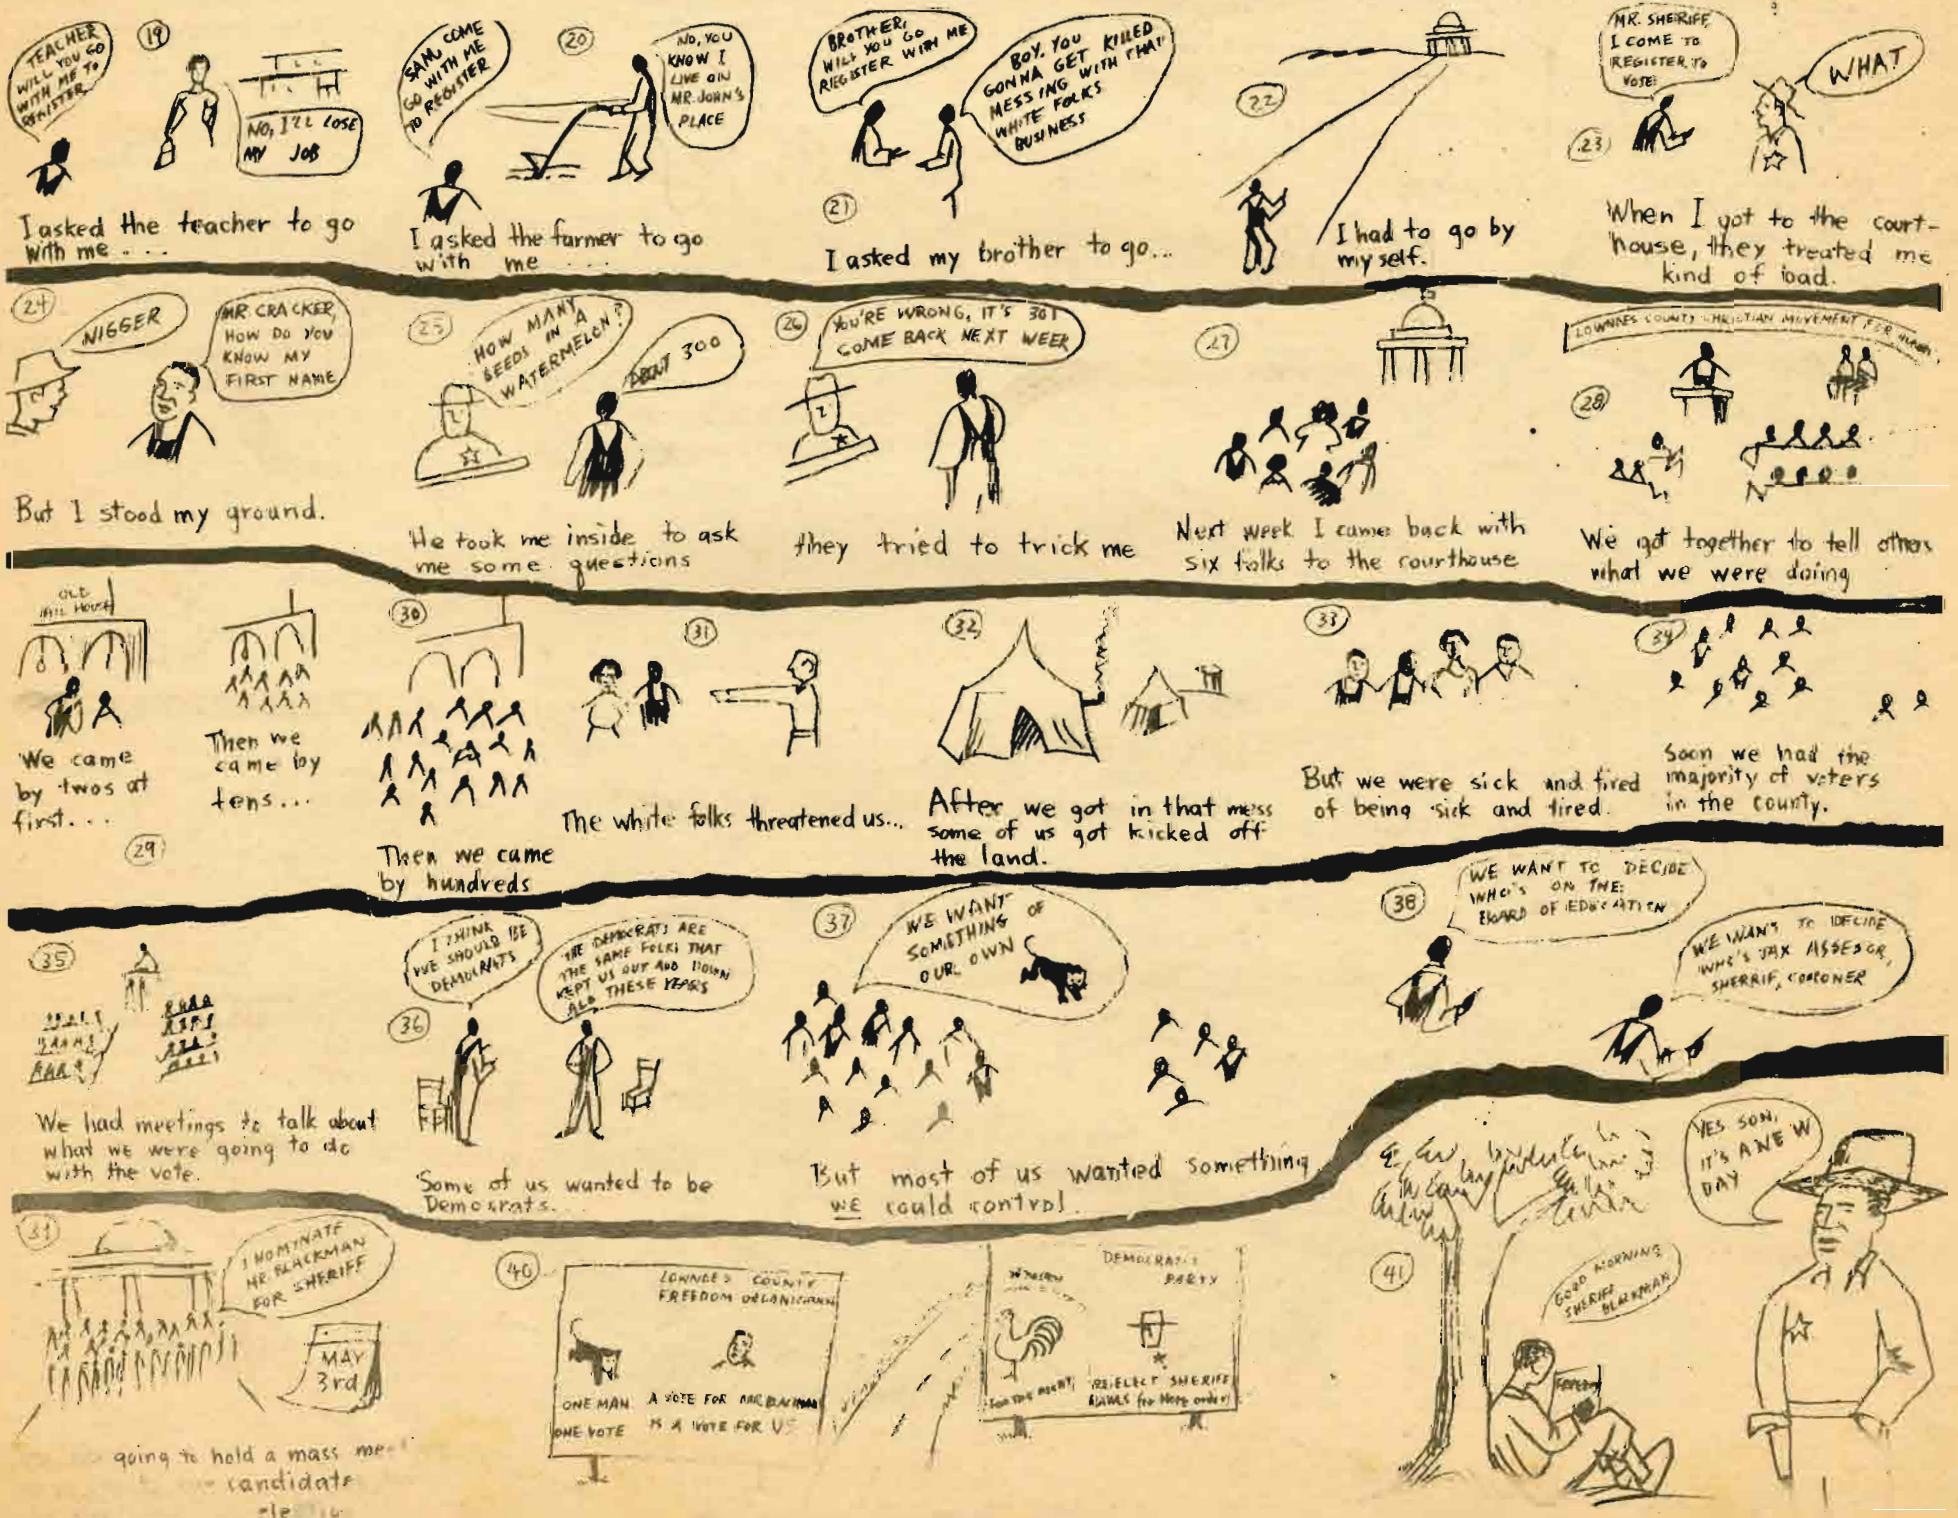 TEACHER
WILL YOU GO
WITH ME TO
REGISTER
19
NO, I'LL LOSE
MY JOB
I asked the teacher to go
with me . . . .
SAM, COME
GO WITH ME
TO REGISTER
20
NO, YOU
KNOW I
LIVE ON
MR. JOHN'S
PLACE
I asked the farmer to go
with me . . . .
BROTHER,
WILL YOU GO
REGISTER WITH ME
BOY, YOU
GONNA GET KILLED
MESSING WITH THAT
WHITE FOLKS
BUSINESS
21
I asked my brother to go...
22
I had to go by
my self.
MR. SHERIFF,
I COME TO
REGISTER TO
VOTE
WHAT
23
When I got to the court-
house, they treated me
kind of bad.
24
NIGGER
MR. CRACKER,
HOW DO YOU
KNOW MY
FIRST NAME
But I stood my ground.
25
HOW MANY
SEEDS IN A
WATERMELON?
ABOUT 300
He took me inside to ask
me some questions
26
YOU'RE WRONG, IT'S 301
COME BACK NEXT WEEK
they tried to trick me
27
Next week I came back with
six folks to the courthouse
LOWNDES COUNTY CHRISTIAN MOVEMENT FOR HUMAN
28
We got together to tell others
what we were doing
OLD
JAIL HOUSE
We came
by twos at
first...
29
Then we
came by
tens...
30
Then we came
by hundreds
31
The white folks threatened us...
32
After we got in that mess
some of us got kicked off
the land.
33
But we were sick and tired
of being sick and tired.
34
Soon we had the
majority of voters
in the county.
35
We had meetings to talk about
what we were going to do
with the vote.
I THINK
WE SHOULD BE
DEMOCRATS
THE DEMOCRATS ARE
THE SAME FOLKS THAT
KEPT US OUT AND DOWN
ALL THESE YEARS
36
Some of us wanted to be
Democrats...
37
WE WANT
SOMETHING OF
OUR OWN
But most of us wanted something
WE could control.
38
WE WANT TO DECIDE
WHO'S ON THE
BOARD OF EDUCATION
WE WANT TO DECIDE
WHO'S TAX ASSESOR,
SHERRIF, CORONER
39
I NOMINATE
MR. BLACKMAN
FOR SHERIFF
MAY
3rd
going to hold a mass
candidate
40
LOWNDES COUNTY
FREEDOM ORGANIZATION
ONE MAN
ONE VOTE
A VOTE FOR MR BLACKMAN
IS A VOTE FOR US
DEMOCRATIC
PARTY
FOR THE RIGHT
RE-ELECT SHERIFF
for More order
41
GOOD MORNING
SHERIFF
BLACKMAN
YES SON,
IT'S A NEW
DAY